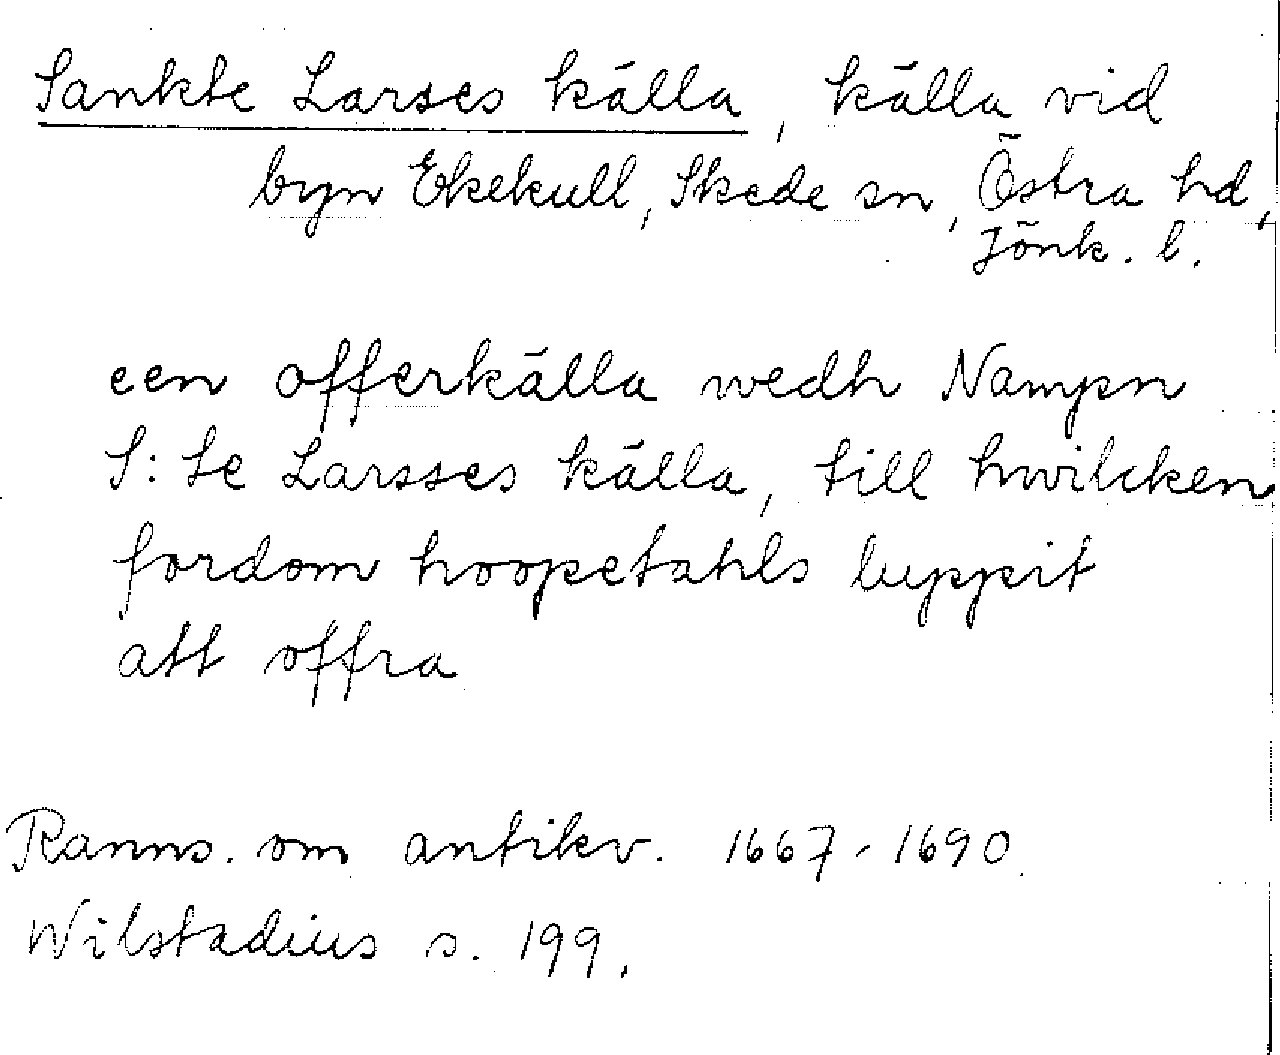 Sankte Larses källa, källa vid
byn Ekekull, Skede sn, Östra hd,
Jönk. l.
een offerkälla wedh Nampn
S:te Larsses källa, till hwilcken
fordom hoopetahls luppit
att offra
Ranns. om antikv. 1667-1690.
Wilstadius s. 199.